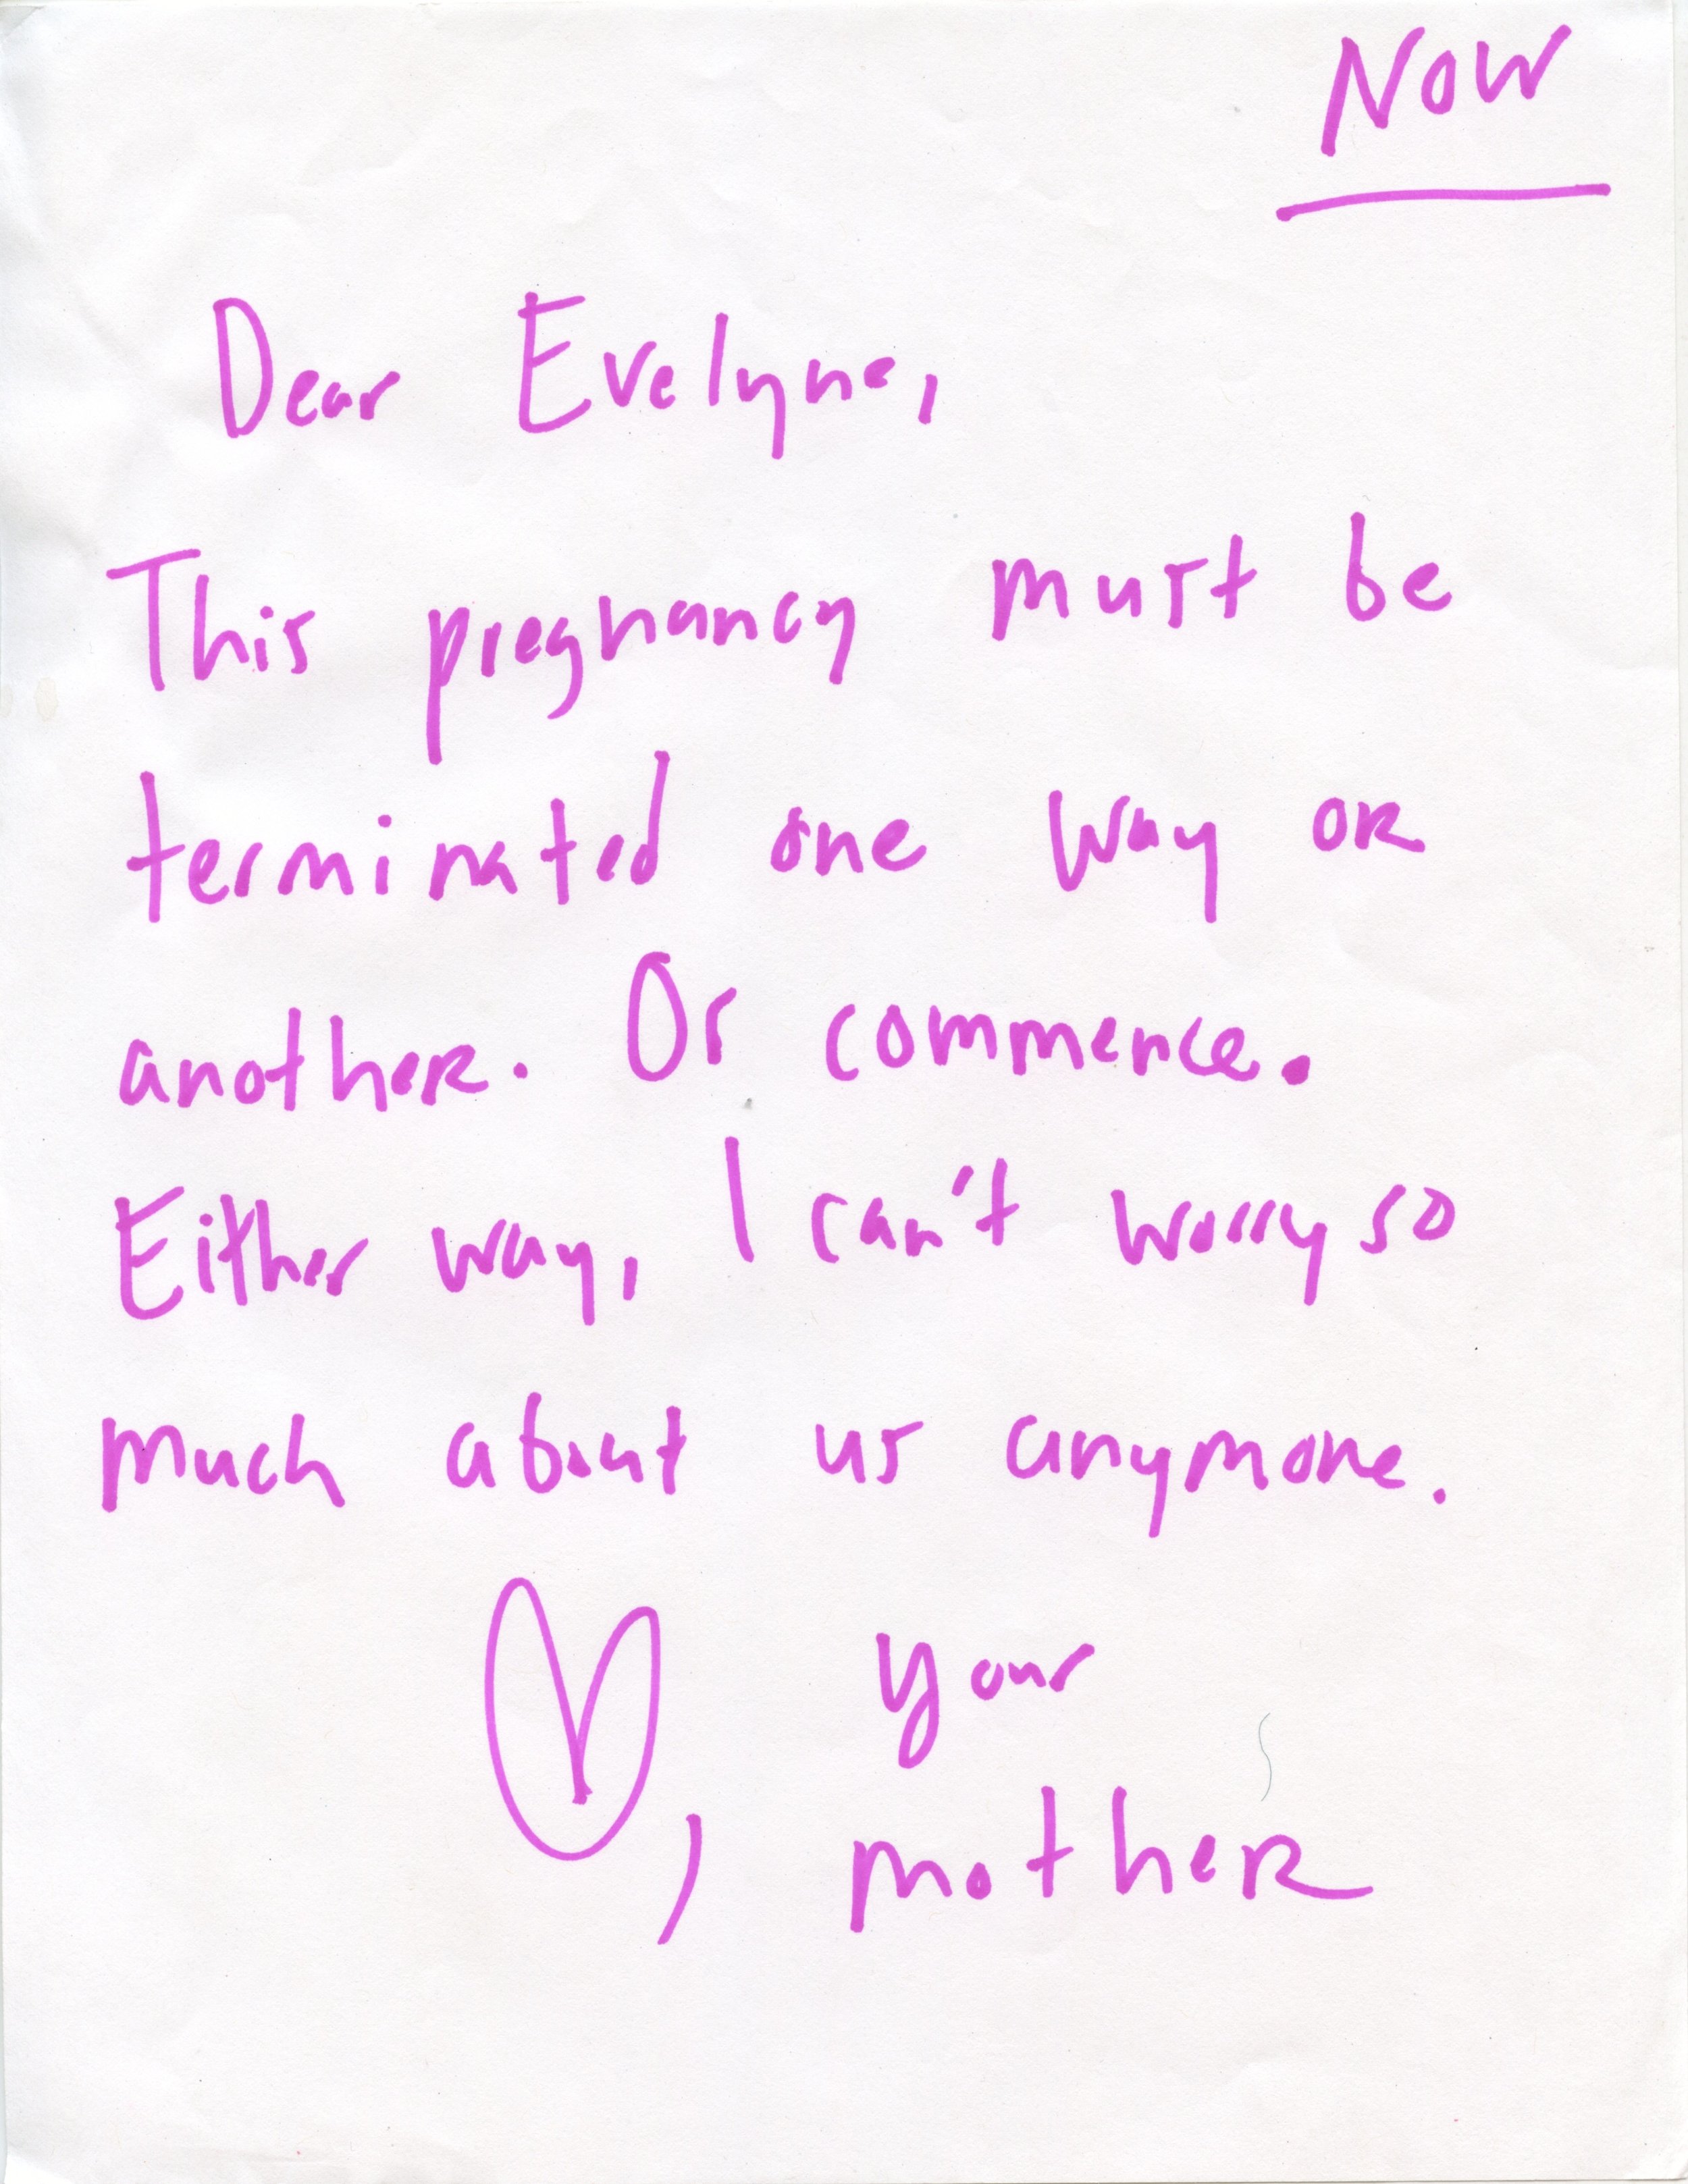 Now
Dear Evelyne,
This pregnancy must be
terminated one way or
another. Or commence.
Either way, I can't worry so
much about us anymore.
♡, your
mother